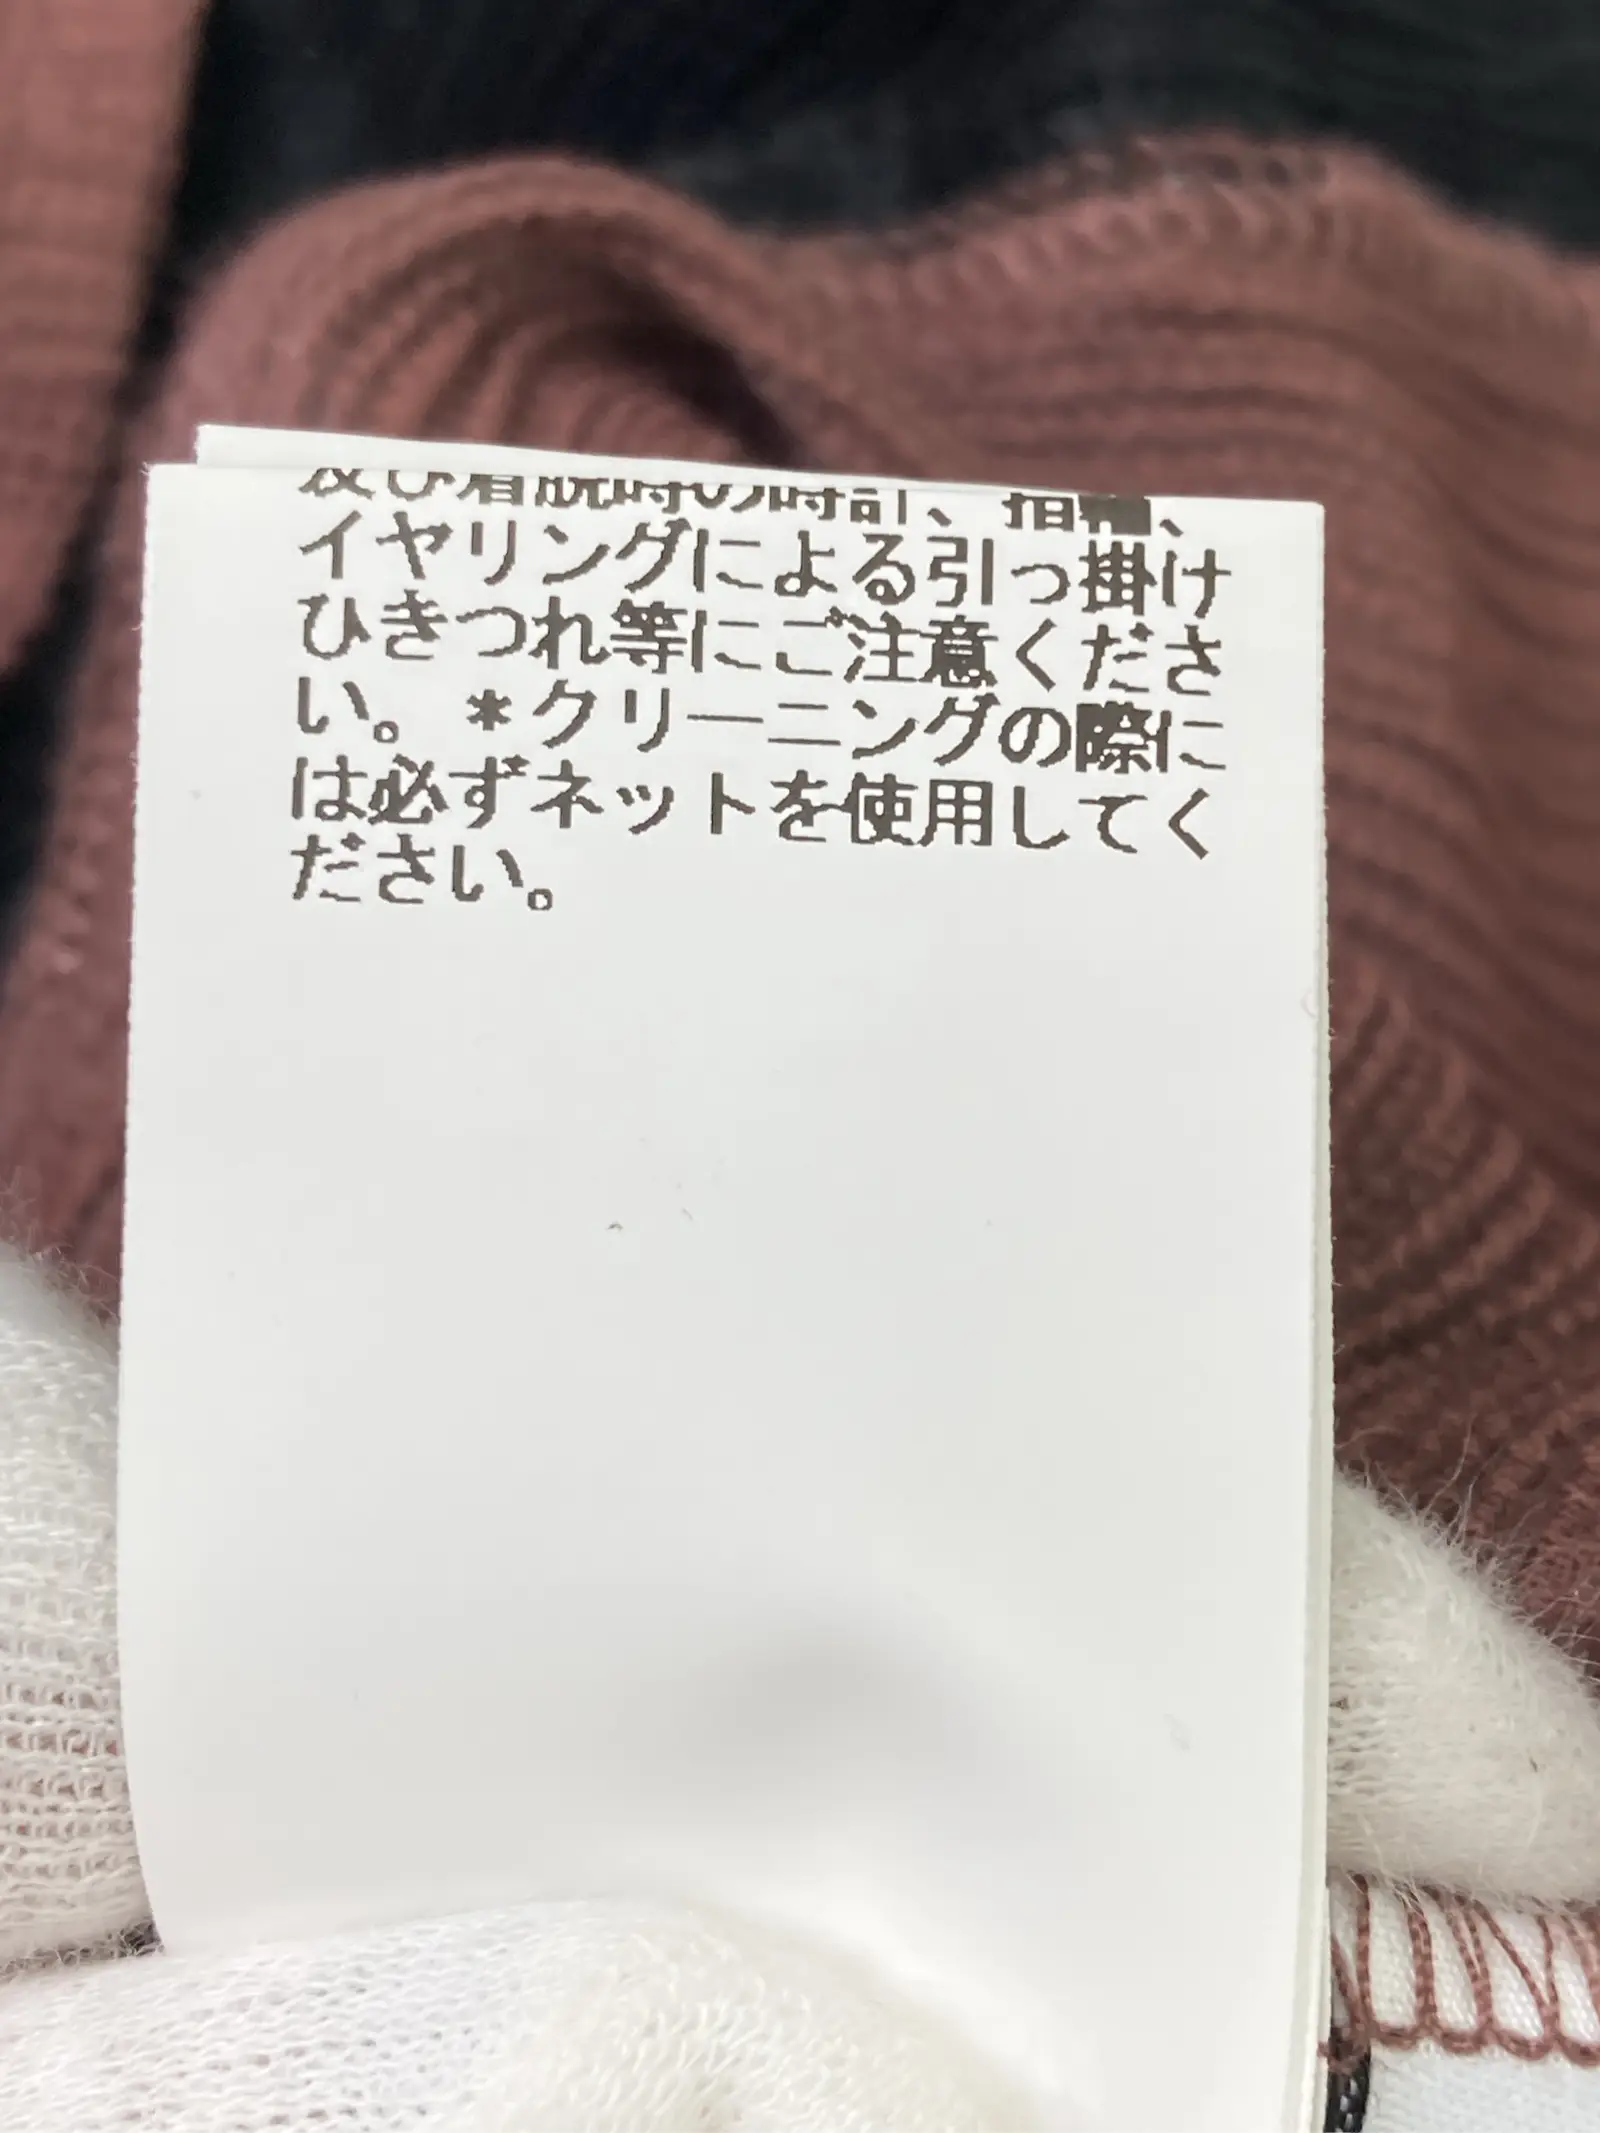 及び着脱時の時計、指輪、
イヤリングによる引っ掛け
ひきつれ等にご注意くださ
い。＊クリーニングの際に
は必ずネットを使用してく
ださい。